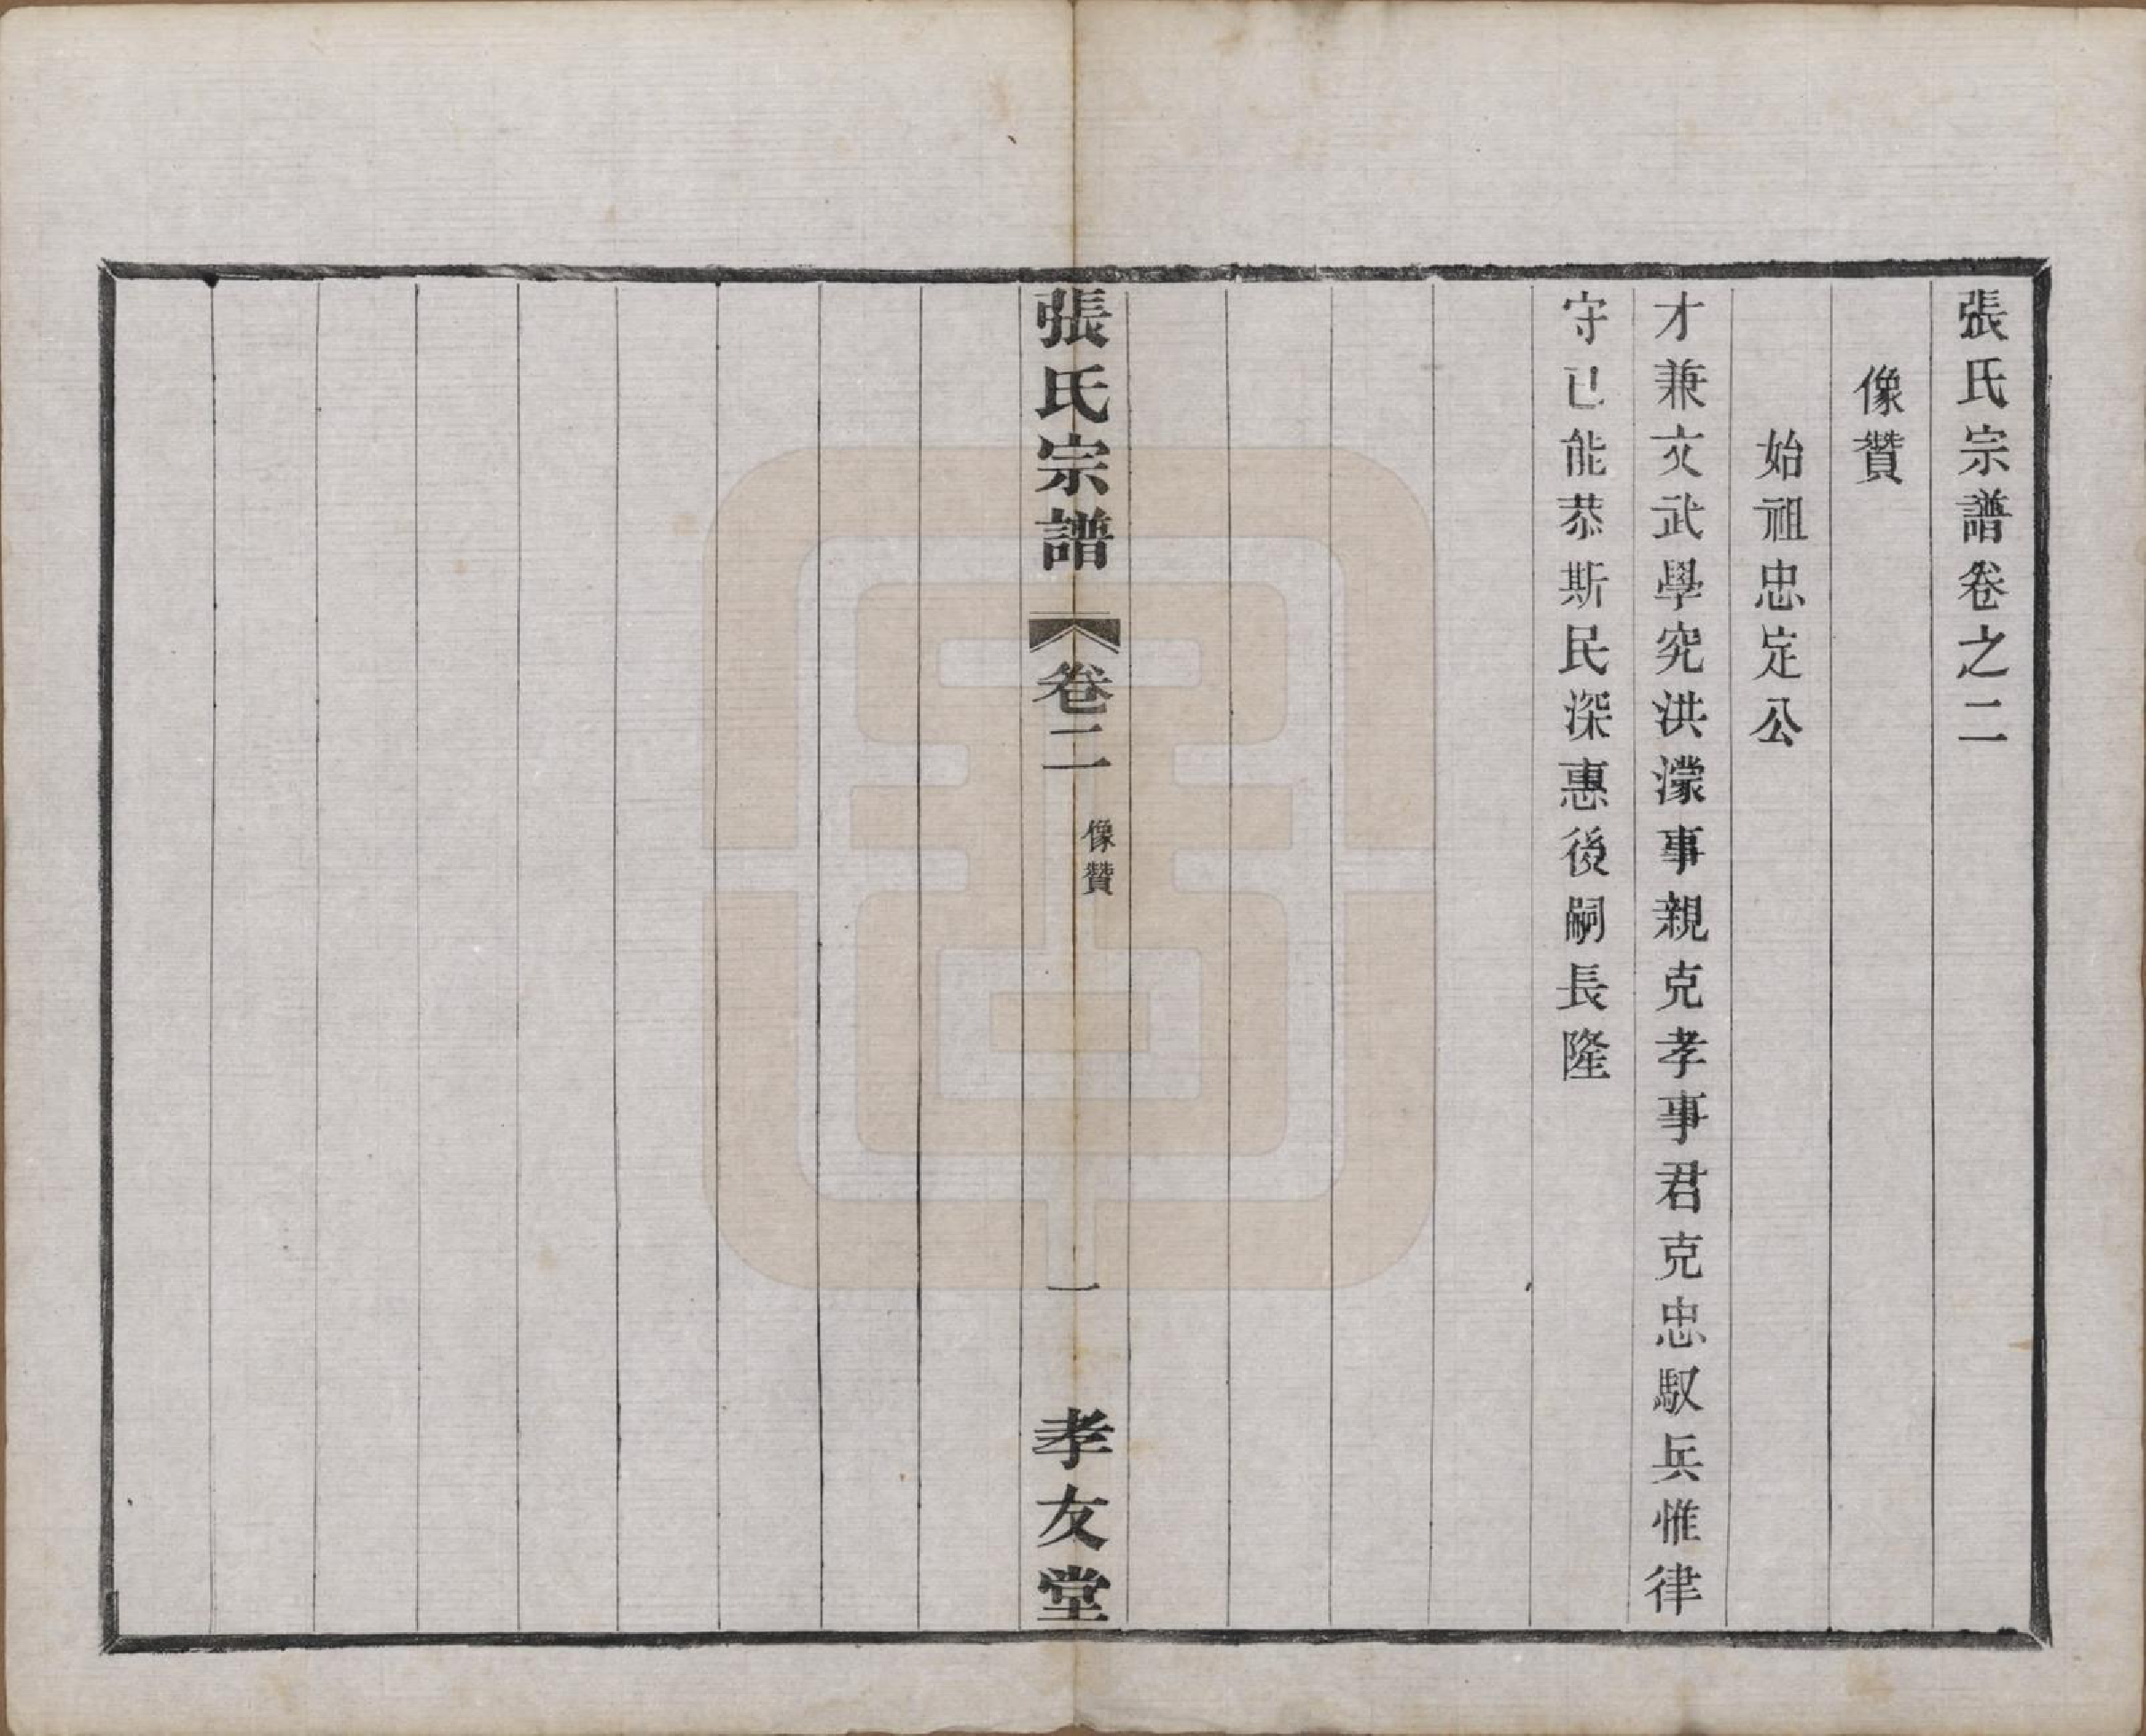 張氏宗譜卷之二
像贊
始祖忠定公
才兼文武學究洪濛事親克孝事君克忠馭兵惟律
守己能恭斯民深惠後嗣長隆
張氏宗譜
卷二
像贊
一
孝友堂